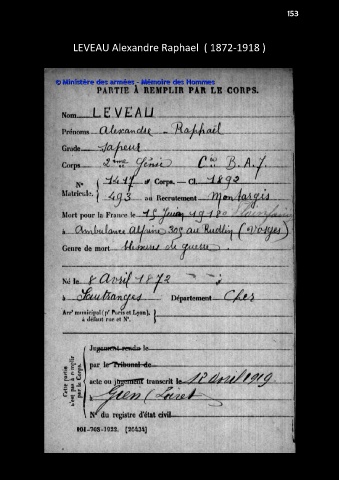 153
LEVEAU Alexandre Raphael ( 1872-1918 )
© Ministère des armées - Mémoire des Hommes
PARTIE À REMPLIR PAR LE CORPS.
Nom LEVEAU
Prénoms Alexandre - Raphaël
Grade Sapeur
Corps 2ème Génie Cie B. A. 7.
N° 1417 au Corps. — Cl. 1892
Matricule. 493 au Recrutement Montargis
Mort pour la France le 15 Juin 1918
à Ambulance Alpine 305 au Rudlin (Vosges)
Genre de mort blessures de guerre
Né le 8 Avril 1872
à Sautranges Département Cher
Arrt municipal (pr Paris et Lyon), à défaut rue et N°.
Cette partie n'est pas à remplir par le Corps.
Jugement rendu le
par le Tribunal de
acte ou jugement transcrit le 12 avril 1919
à Gien (Loiret
N° du registre d'état civil
101-708-1922. [26434]